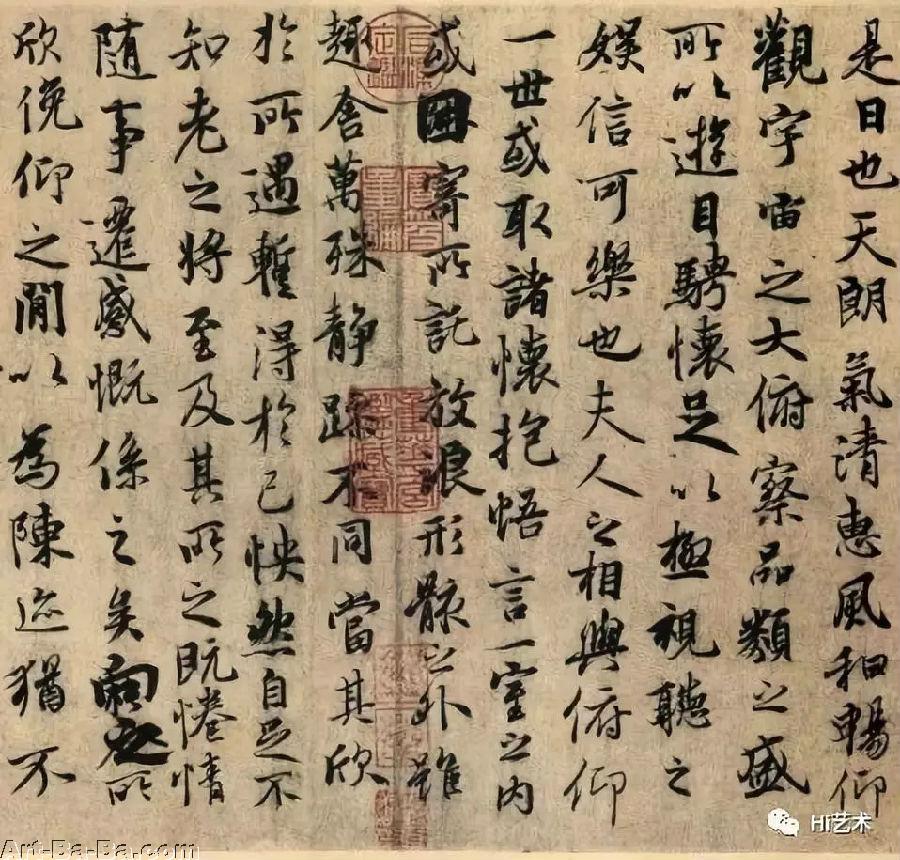 是日也天朗氣清惠風和暢仰
觀宇宙之大俯察品類之盛
所以遊目騁懷足以極視聽之
娛信可樂也夫人之相與俯仰
一世或取諸懷抱悟言一室之內
或因寄所託放浪形骸之外雖
趣舍萬殊靜躁不同當其欣
於所遇暫得於己怏然自足不
知老之將至及其所之既惓情
隨事遷感慨係之矣向之所
欣俛仰之閒以為陳迹猶不
Hi艺术
Art-Ba-Ba.com